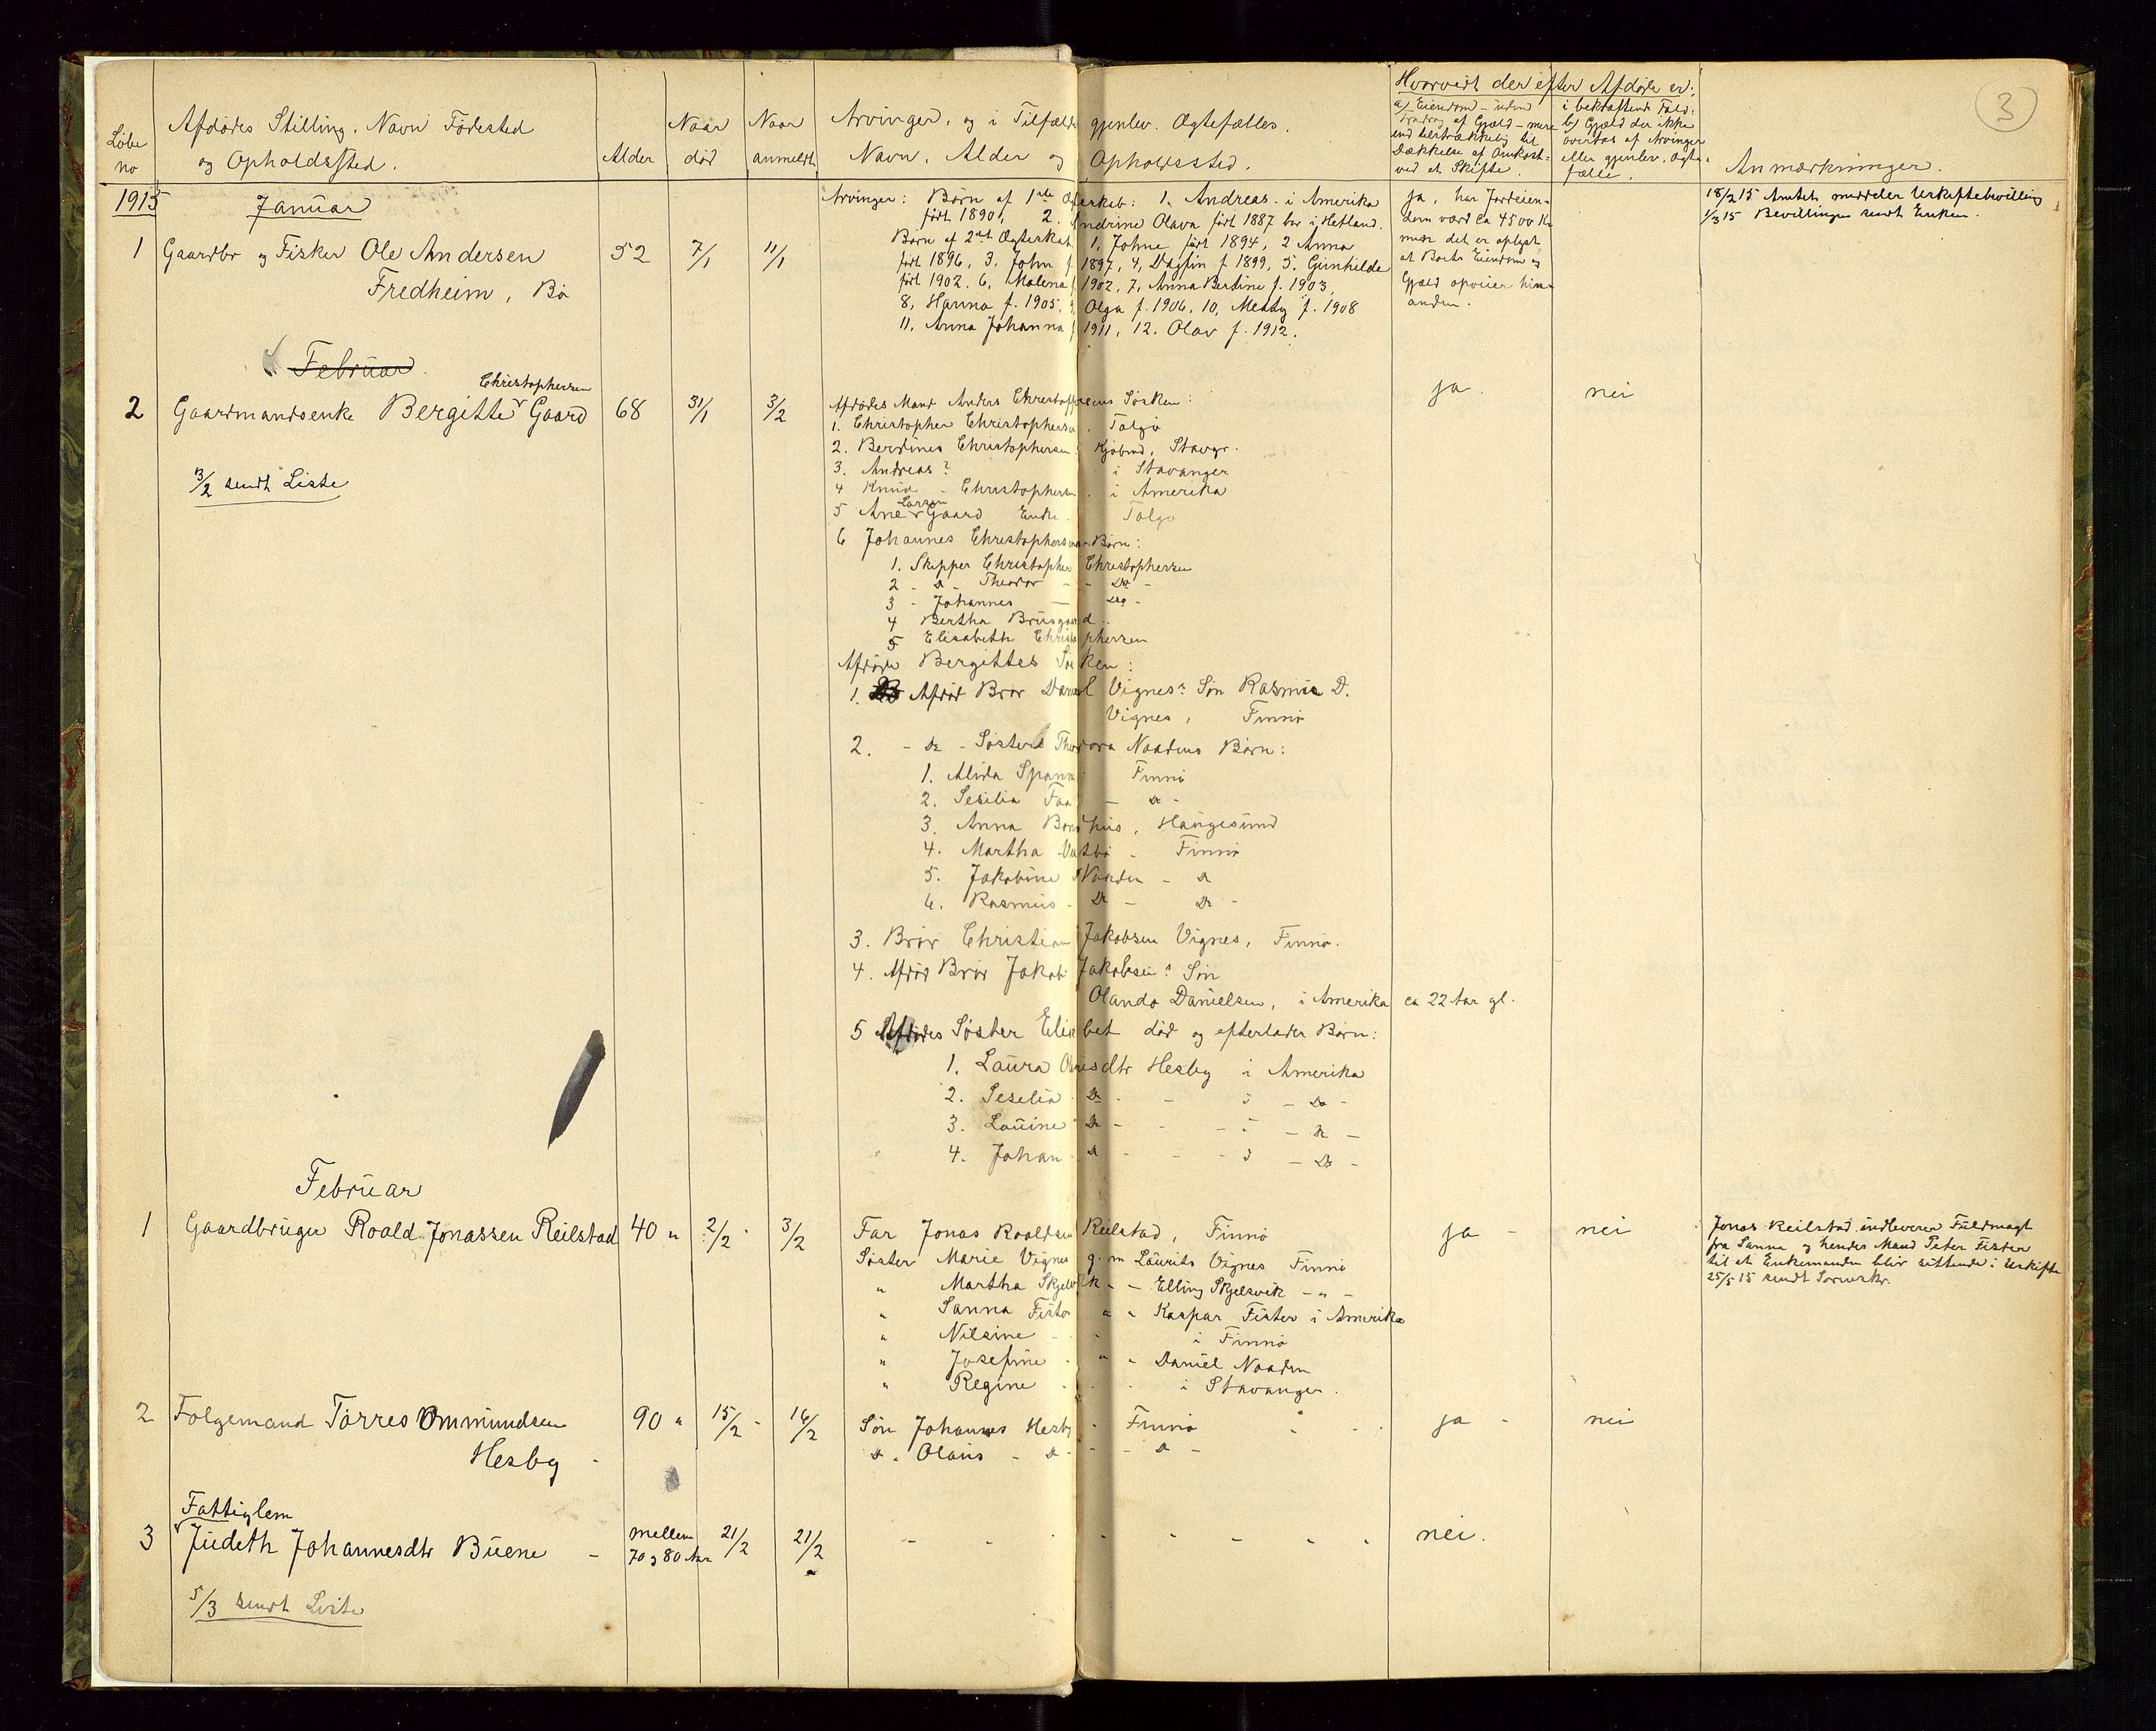 3
Løbe no
Afdødes Stilling, Navn Fødested
og Opholdssted.
Alder
Naar død
Naar anmeldt
Arvinger, og i Tilfælde gjenlev. Ægtefælles.
Navn, Alder og Opholdssted.
Hvorvidt der efter Afdøde er:
a) Eiendom - uden
Fradrag af Gjæld - mere
end tilstrækkelig til
Dækkelse af Omkost-
ved et Skifte.
i bekræftende Fald:
b) Gjæld der ikke
overtas af Arvinger
eller gjenlev. Ægte-
fælle.
Anmærkninger.
1915
Januar
1 Gaardbr og Fisker Ole Andersen 52 7/1 11/1
Fredheim, Bø
Arvinger: Børn af 1ste Ægteskab: 1. Andreas i Amerika
født 1890, 2. Andrine Olava født 1887 bor i Hetland.
Børn af 2det Ægteskab 1, Johne født 1894, 2 Anna
født 1896, 3. John f. 1897, 4, Dagfin f. 1899, 5. Gunhilde
født 1902. 6, Malena f. 1902, 7, Anna Bertine f. 1903,
8, Hanna f. 1905, 9, Olga f. 1906, 10, Metty f. 1908
11, Anna Johanna f. 1911, 12. Olav f. 1912.
ja, har Jordeien-
dom værd ca 4500 Kr
men det er oplyst
at Boets Eiendom og
Gjæld opveier hin-
anden.
18/2 15 Amtet meddeler Uskiftebevilling
1/3 15 Bevillingen sendt Enken.
Februar
Christophersen
2 Gaardmandsenke Bergitte Gaard 68 31/1 3/2
13/2 sendt Liste
Afdødes Mand Anders Christophersens Søsken:
1. Christopher Christophersen. Talgø
2. Berdines Christophersen Kjøbmd, Stavgr.
3. Andreas? i Stavanger
4 Knud - Christophersen. i Amerika
Larsen
5 Ane Gaard Enke. Talgø
6 Johannes Christophersens Børn:
1. Skipper Christopher Christophersen
2 - Do - Theodor - Do -
3 - Johannes - Do -
4 Bertha Brusgaard.
5 Elisabeth Christophersen
Afdøde Bergittes Søsken:
1. Afdød Bror Daniel Vignes: Søn Rasmus D.
Vignes, Finnø
2. - Do - Søsters Theodora Naadens Børn:
1. Alida Spanne Finnø
2. Sesilia - Do -
3. Anna , Haugesund
4. Martha - Finnø
5. Jakobine Naaden - Do
6. Rasmus - Do - Do -
3. Bror Christian Jakobsen Vignes, Finnø.
4. Afdød Bror Jakob Jakobsen: Søn
Olando Danielsen, i Amerika ca 22 Aar gl.
5 Afdødes Søster Elisabet død og efterlader Børn:
1. Laura Olausdtr Hesby i Amerika
2. Seselia - Do - i - Do -
3. Lauine - Do - i - Do -
4. Johan - Do - i - Do -
ja. nei
Februar
1 Gaardbruger Roald Jonassen Reilstad 40 " 2/2 3/2
Far Jonas Roaldsen Reilstad, Finnø
Søster Marie Vignes g. m Laurits Vignes Finnø
" Martha Skjelsvik " - Elling Skjelsvik - " -
" Sanna Fister " " Kaspar Fister i Amerika
" Nilsine - i Finnø
" Josefine - " " Daniel Naaden
" Regine - i Stavanger.
ja - nei
Jonas Reilstad indleverer Fuldmagt
fra Sanna og hendes Mand Peter Fister
til at Enkemanden blir sittende i Uskifte
25/5 15 sendt Sorenskr.
2 Folgemand Tørres Ommundsen 90 " 15/2 - 16/2
Hesby -
Søn Johannes Hesby - Finnø
Do - Olaus - Do - - Do -
ja - nei
Fattiglem
3 Judeth Johannesdtr Buene - mellem 70 og 80 Aar 21/2 21/2
nei.
5/3 sendt Liste